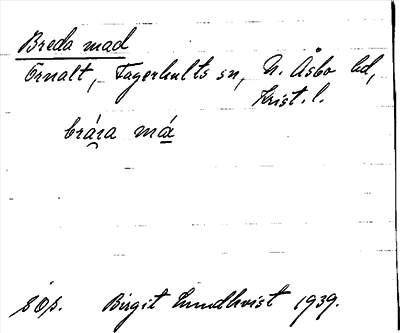 Breda mad
Ornalt, Fagerhults sn, N. Åsbo hd,
Krist. l.
brára má
s. Op. Birgit Lundkvist 1939.